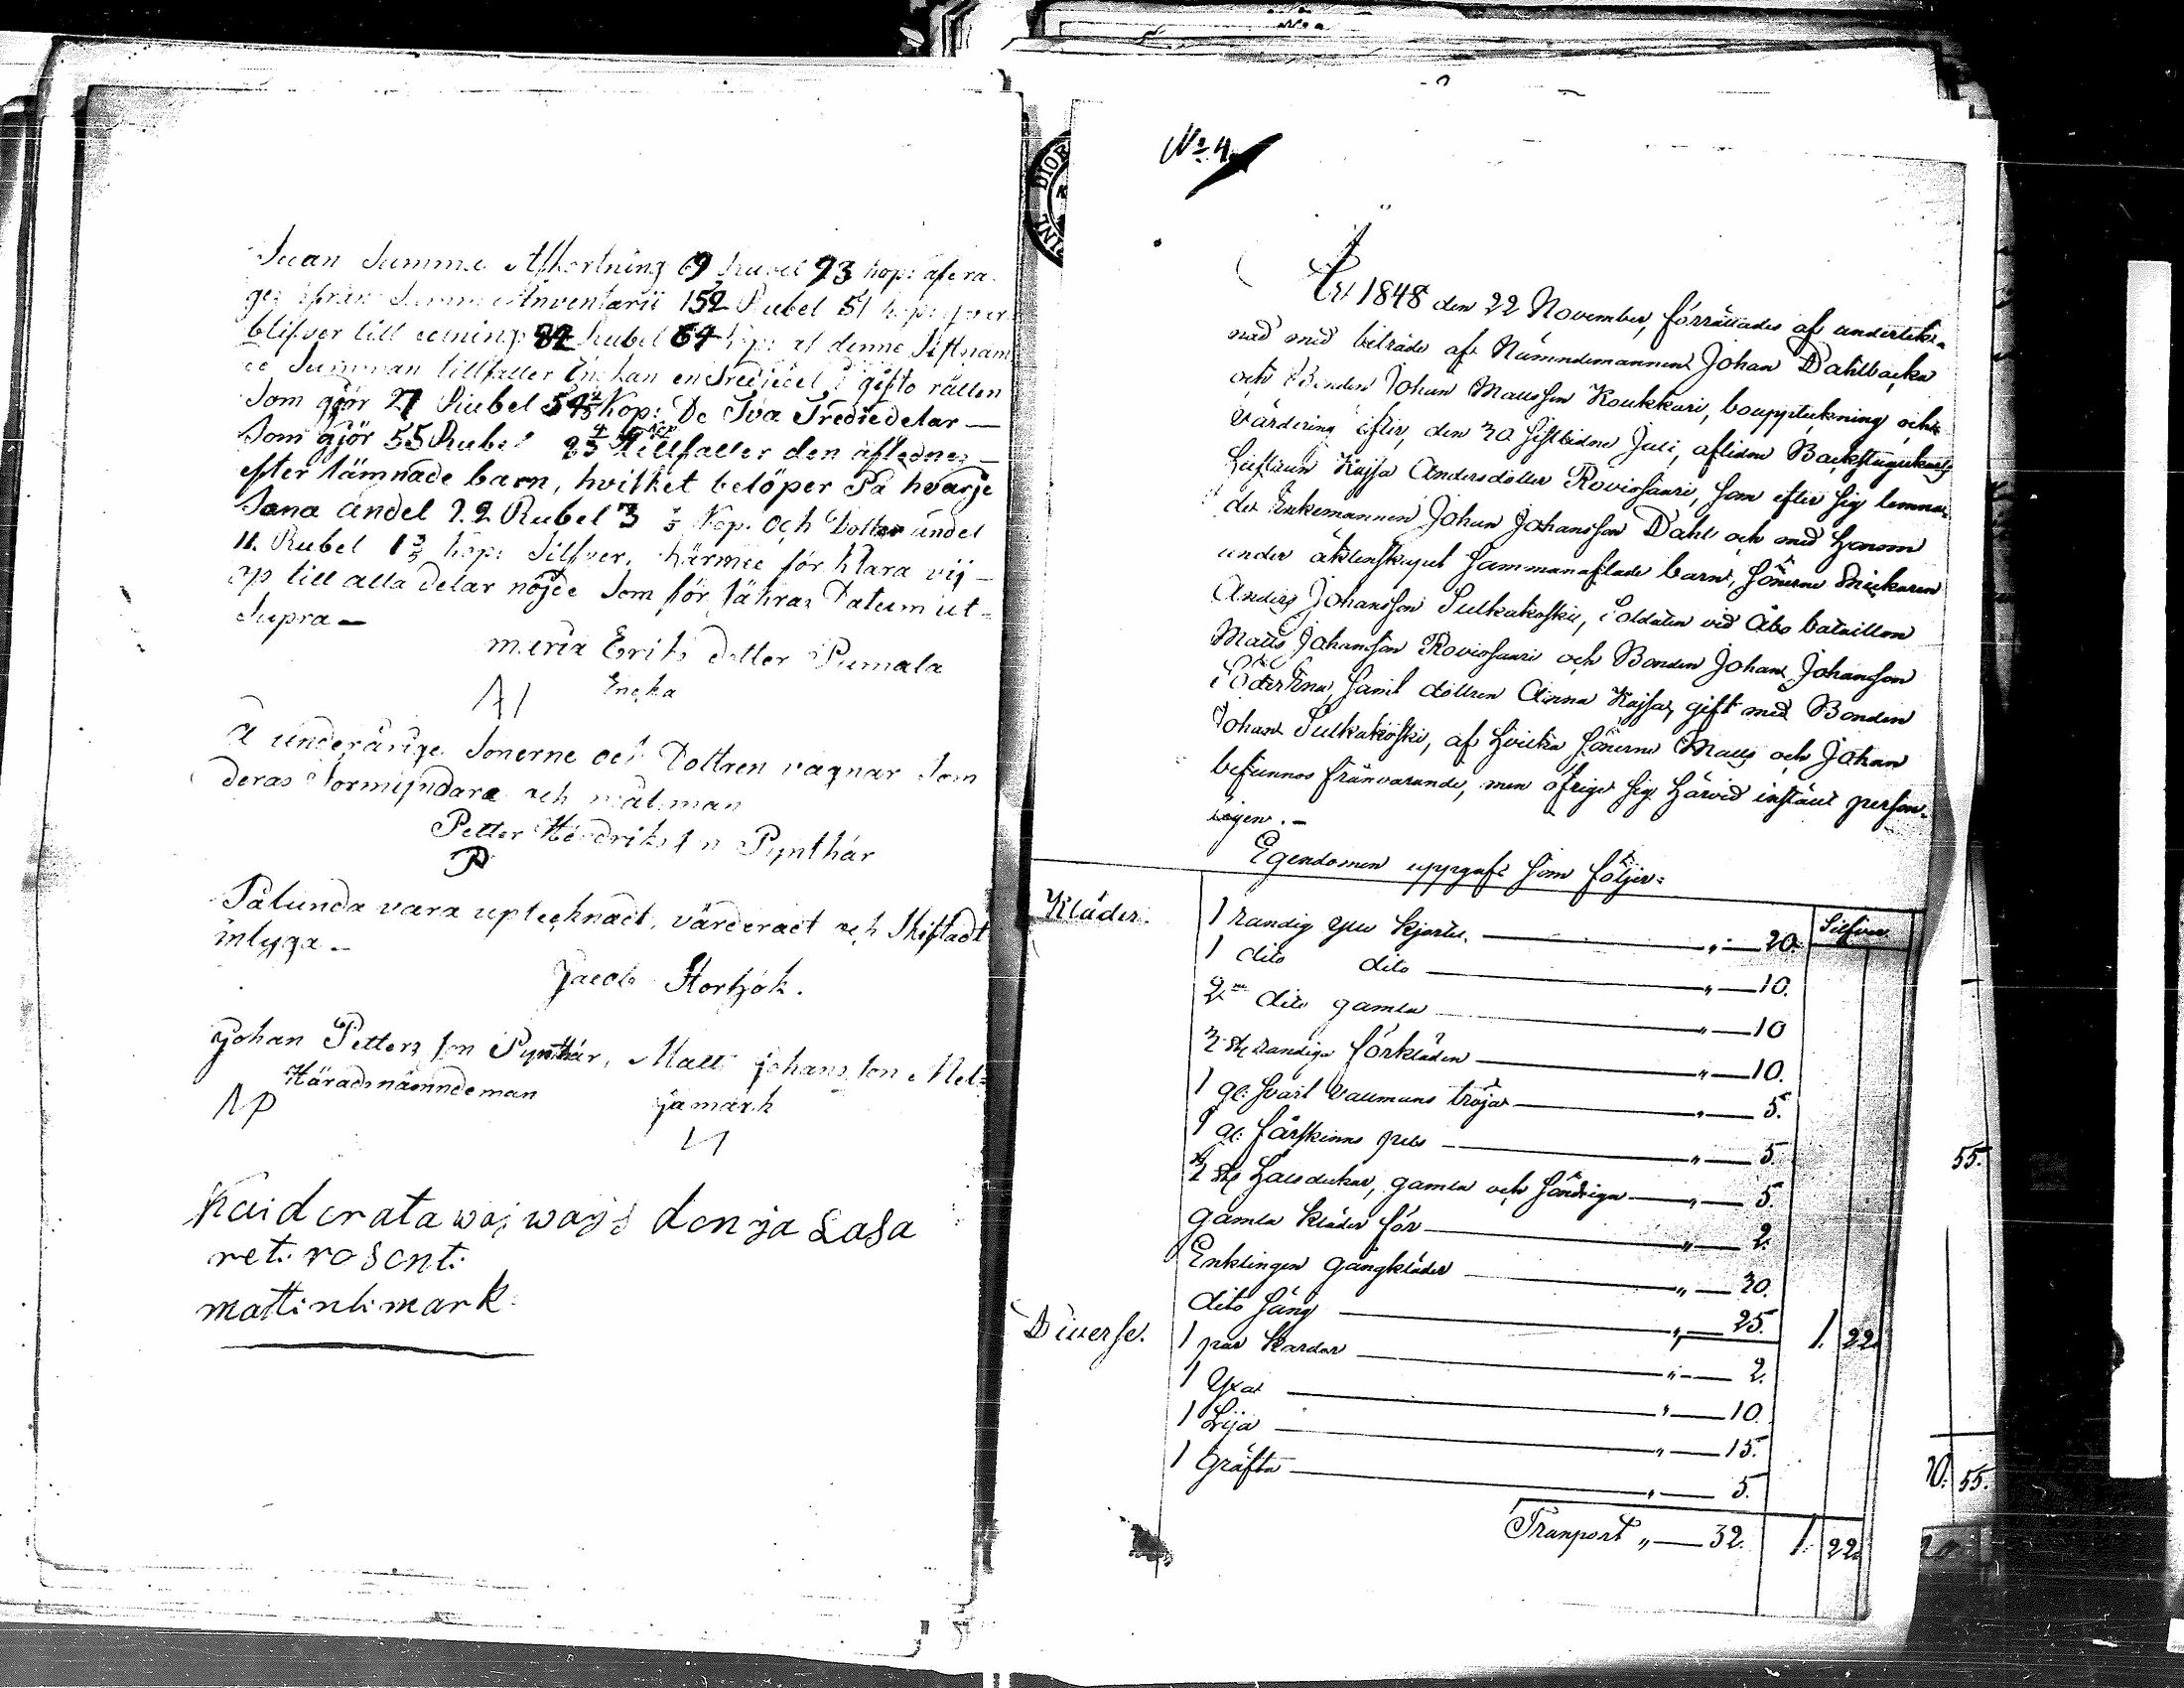 Summa Afkortning 69 Rubel 93 kop:
Summa Inventarii 152 Rubel 51 kop:
blifver till delning 82 Rubel 64 kop: af denne Siftnäm
de Summan tillfaller Enkan en Tredjedel i gifto rätten
Som gjör 27 Rubel 54 2/3 Kop: De Två Tredjedelar —
Som gjör 55 Rubel tillfaller den aflednes —
efter lämnade barn, hvilket belöper På hvarje
Sona andel 22 Rubel 3 Kop. Och Dotter andel
11. Rubel 1 kop: Silfver, härmed för klara vij –
os till alla delar nöjde Som för säkras Datum ut =
Supra —
Maria Eriks dotter Pumala
Encka
å underårige Sönerne och Dottren vägnar Som
deras Förmyndare och målsman
Petter Hendriksson Pynthär
P
Sålunda vara uptecknadt, värderadt och Skiftadt
intyga –
Jacob Stortzök.
Johan Petters son Pynthär, Matts Johans son Mel=
Häradsnämndeman
jamark
Kaiderata waj ways don ja Sasa
reti rosenti
mattinlimark
No 4
År 1848 den 22 November, förrättades af underteck=
nad med biträde af Nämndemannen Johan Dahlbacka
och Bonden Johan Mattsson Koukkari, bouppteckning och
Värdering efter, den 30 sistledne Juli, aflidne Backstugukarls
hustrun Kajsa Andersdotter Roviosaari, som efter sig lemna=
de Enkemannen Johan Johansson Dahl och med honom
under äktenskapet sammanaflade barn, Sönerne Snickaren
Anders Johansson Sulkakoski, Soldaten vid Åbo bataillon
Matts Johansson Roviosaari och Bonden Johan Johansson
samt dottren Anna Kajsa, gift med Bonden
Johan Sulkakoski, af hvilka Sönerne Matts och Johan
befunnos frånvarande, men öfrige sig härvid instält person=
ligen. –
Egendomen uppgafs som följer:
Silfver
Kläder. 1 randig ylle kjortel. " 20.
1 dito dito " 10.
2ne dito gamla " 10
3 st randiga förkläden " 10.
1 gl: svart vallmans tröja " 5.
1 gl: fårskinns pels " 5.
2 st halsdukar, gamla och söndriga " 5.
gamla kläder för " 2.
Enklingens gångkläder " 30.
dito säng " 25. 1. 22.
Diverse. 1 par kardor " 2.
1 Yxa " 10.
1 Lija " 15.
1 Gräfta " 5.
Tranport " 32. 1. 22.
55.
10. 55.